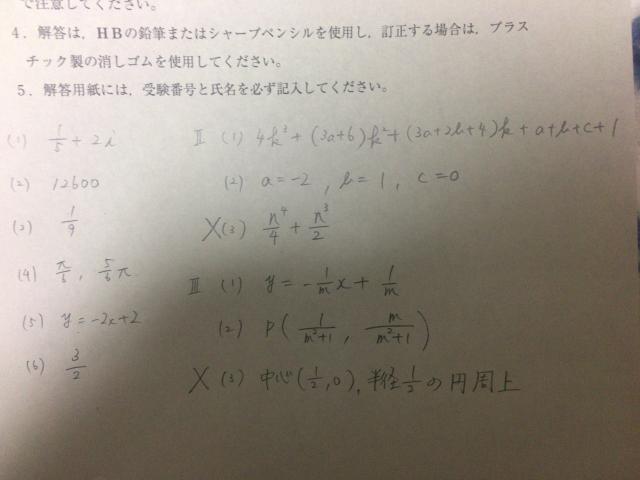 で注意してください。
4．解答は，HBの鉛筆またはシャープペンシルを使用し，訂正する場合は，プラス
チック製の消しゴムを使用してください。
5．解答用紙には，受験番号と氏名を必ず記入してください。
(1) 1/5 + 2i
(2) 12600
(3) 1/9
(4) π/6 , 5/6 π
(5) y = -2x+2
(6) 3/2
Ⅱ (1) 4k³ + (3a+6)k² + (3a+2b+4)k + a+b+c+1
(2) a = -2 , b = 1 , c = 0
X(3) n⁴/4 + n³/2
Ⅲ (1) y = -1/m x + 1/m
(2) P( 1/m²+1 , m/m²+1 )
X (3) 中心(1/2, 0), 半径1/2の円周上